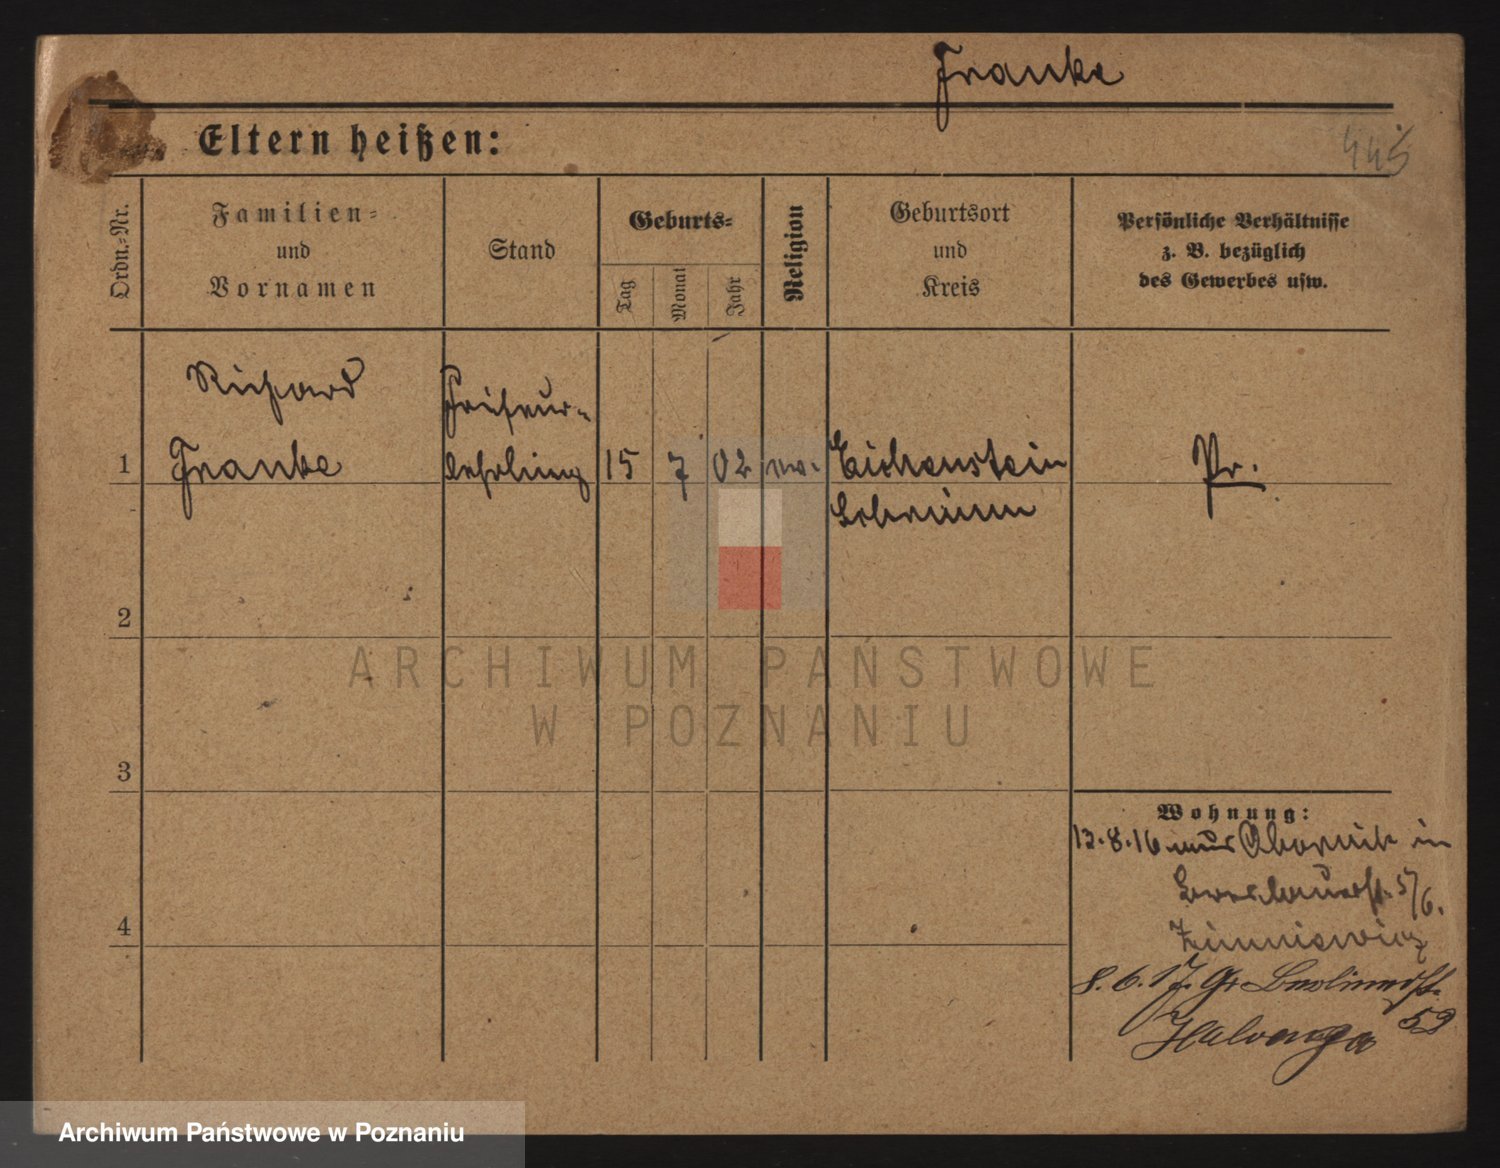 Franke
Eltern heißen:
445
Ordn.=Nr.
Familien=
und
Vornamen
Stand
Geburts=
Tag
Monat
Jahr
Religion
Geburtsort
und
Kreis
Persönliche Verhältnisse
z. B. bezüglich
des Gewerbes usw.
Richard
Franke
Friseur-
lehrling
1
15
7
02
ev.
Eichenstein
Pr.
2
3
4
Wohnung:
13.8.16 aus Obornik in
Breslauerst. 5/6.
8.6.17. Gr Berlinerst.
52
ARCHIWUM PAŃSTWOWE
W POZNANIU
Archiwum Państwowe w Poznaniu